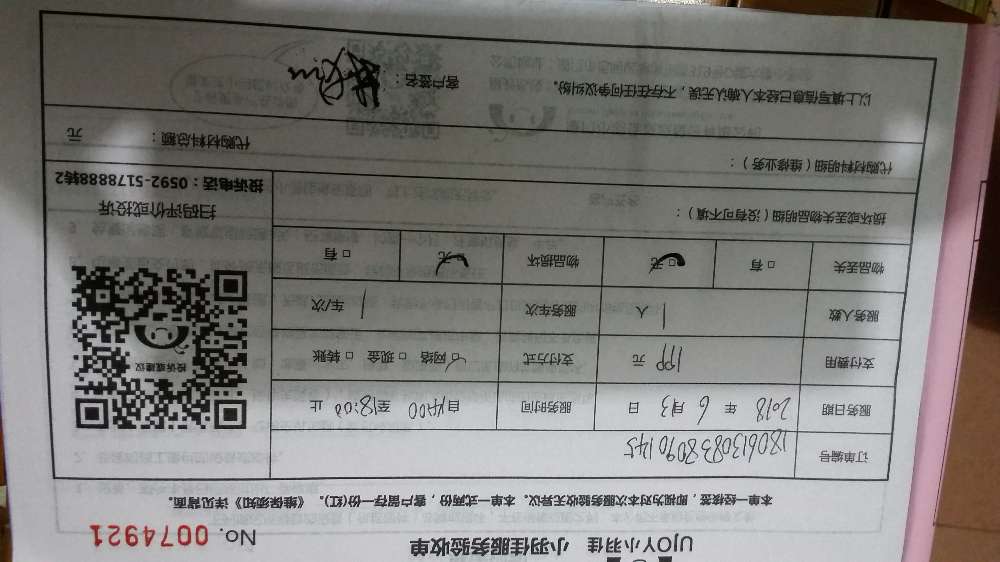 UJOY小羽佳 小羽佳服务验收单 No. 0074921
本单一经签接，即视为对本次服务验收无异议。本单一式两份，客户留存一份(红)。《维保须知》详见背面。
订单编号 1806130838090145
服务日期 2018 年 6 月 13 日 服务时间 自14:00 至18:00 止
支付费用 199 元 支付方式 网络 □ 现金 □ 转账
服务人数 1 人 服务车次 1 车/次
物品丢失 □ 有 □ 无 物品损坏 □ 有 无
损坏或丢失物品明细（没有可不填）：
投诉或建议
扫码评价或投诉
投诉电话：0592-5178888转2
代购材料明细（维修业务）： 代购材料总额： 元
以上填写信息已经本人确认无误，不存在任何争议纠纷。 客户签名：